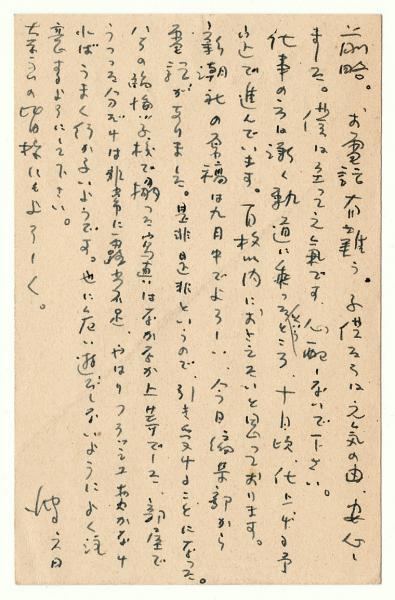 前略。お電話有難う。子供たちは元気の由、安心し
ました。僕は至って元気です。心配しないで下さい。
仕事の方は漸く軌道に乗ったところ 十月頃、仕上げる予
定で進んでいます。百枚以内におさえたいと思っております。
新潮社の原稿は九月中でよろしい、今日編集部から
電話がありました。是非是非というので、引き受けることになった。
学校で撮った写真はなかなか上等でした、部屋で
うつった分だけは非常に露出不足、やはりフラッシュをたかなけ
ればうまく行かないようです。也に危い遊びしないようによく注
意するようにして下さい。
皆様にもよろしく。